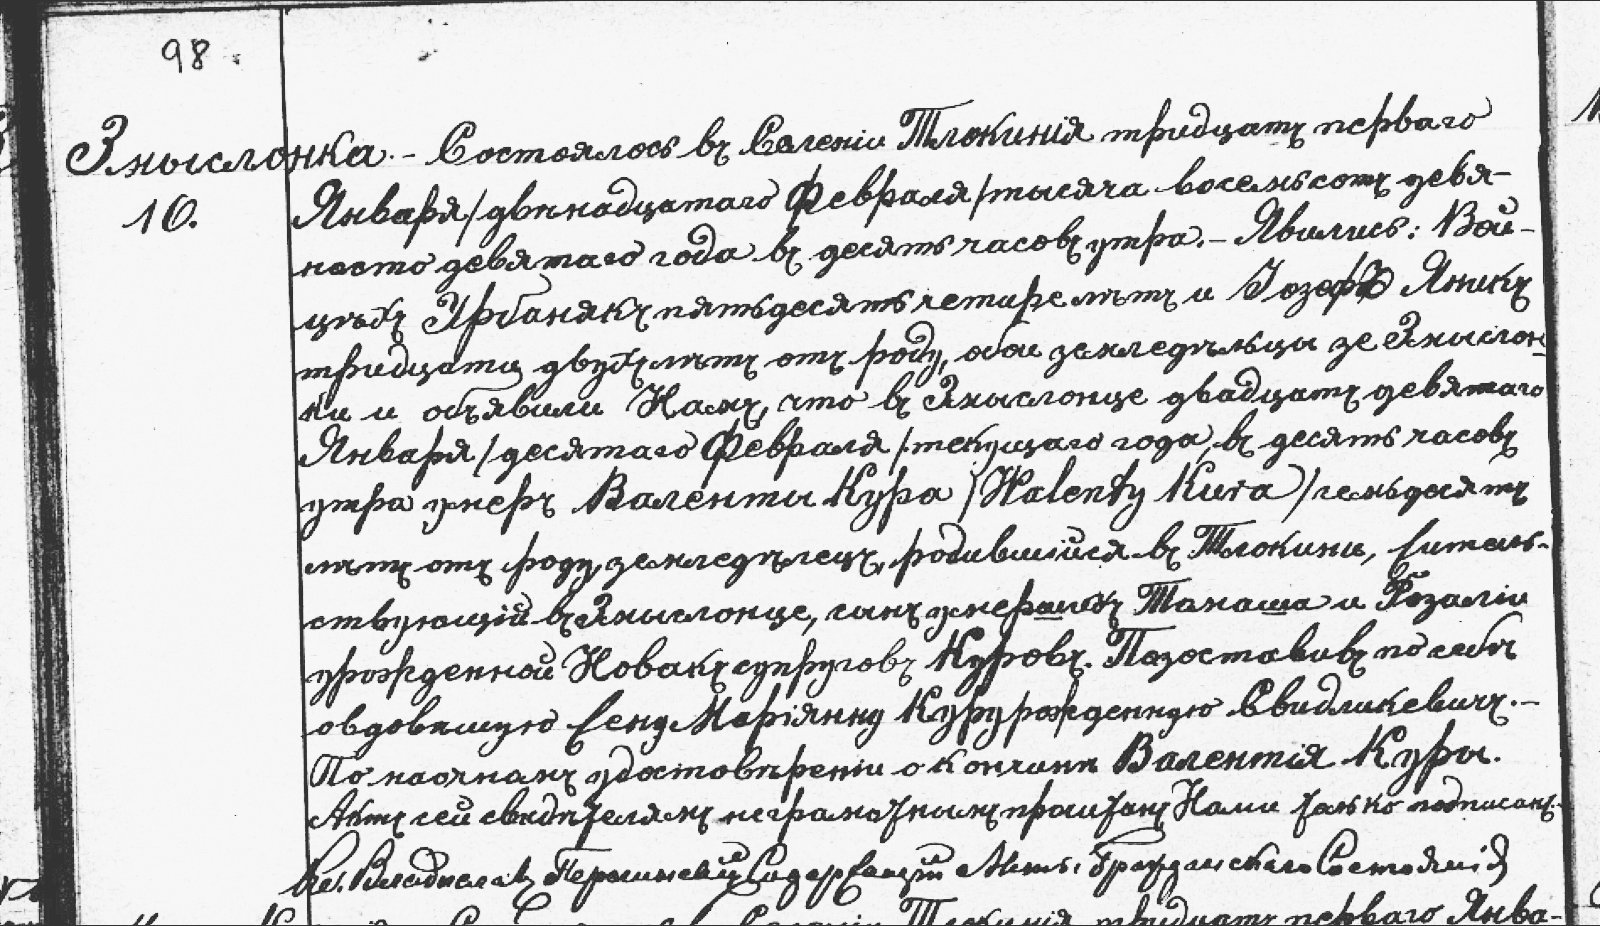 98
Змыслонка. – Состоялось въ Селеніи Тлокинія тридцать перваго
10.
Января /двѣнадцатаго Февраля/ тысяча восемьсотъ девя-
носто девятаго года въ десять часовъ утра. – Явились: Вой-
цѣхъ Урбанякъ пятьдесятъ четыре лѣтъ и Іозефъ Яникъ
тридцати двухъ лѣтъ отъ роду, обои земледѣльцы зе Змыслон-
ки и объявили Намъ, что въ Змыслонце двадцать девятаго
Января /десятаго Февраля/ текущаго года, въ десять часовъ
утра умеръ Валенты Кура /Walenty Kura/ семьдесятъ
лѣтъ отъ роду, земледѣлецъ, родившійся въ Тлокини, жительь-
ствующій въ Змыслонце, сынъ умершихъ Томаша и Розаліи
урожденной Новакъ супруговъ Куровъ. Позоставивъ по себѣ
овдовѣлую жену Маріянну Куру рожденную Свидликевичъ. –
По наочномъ удостовѣреніи о кончинѣ Валентія Куры.
Актъ сей свидѣтелямъ неграмотнымъ прочитанъ Нами только подписанъ. –
Кс. Владиславъ Содержащій Акты Гражданскаго Состоянія
Тлокинія тридцать перваго Янва-